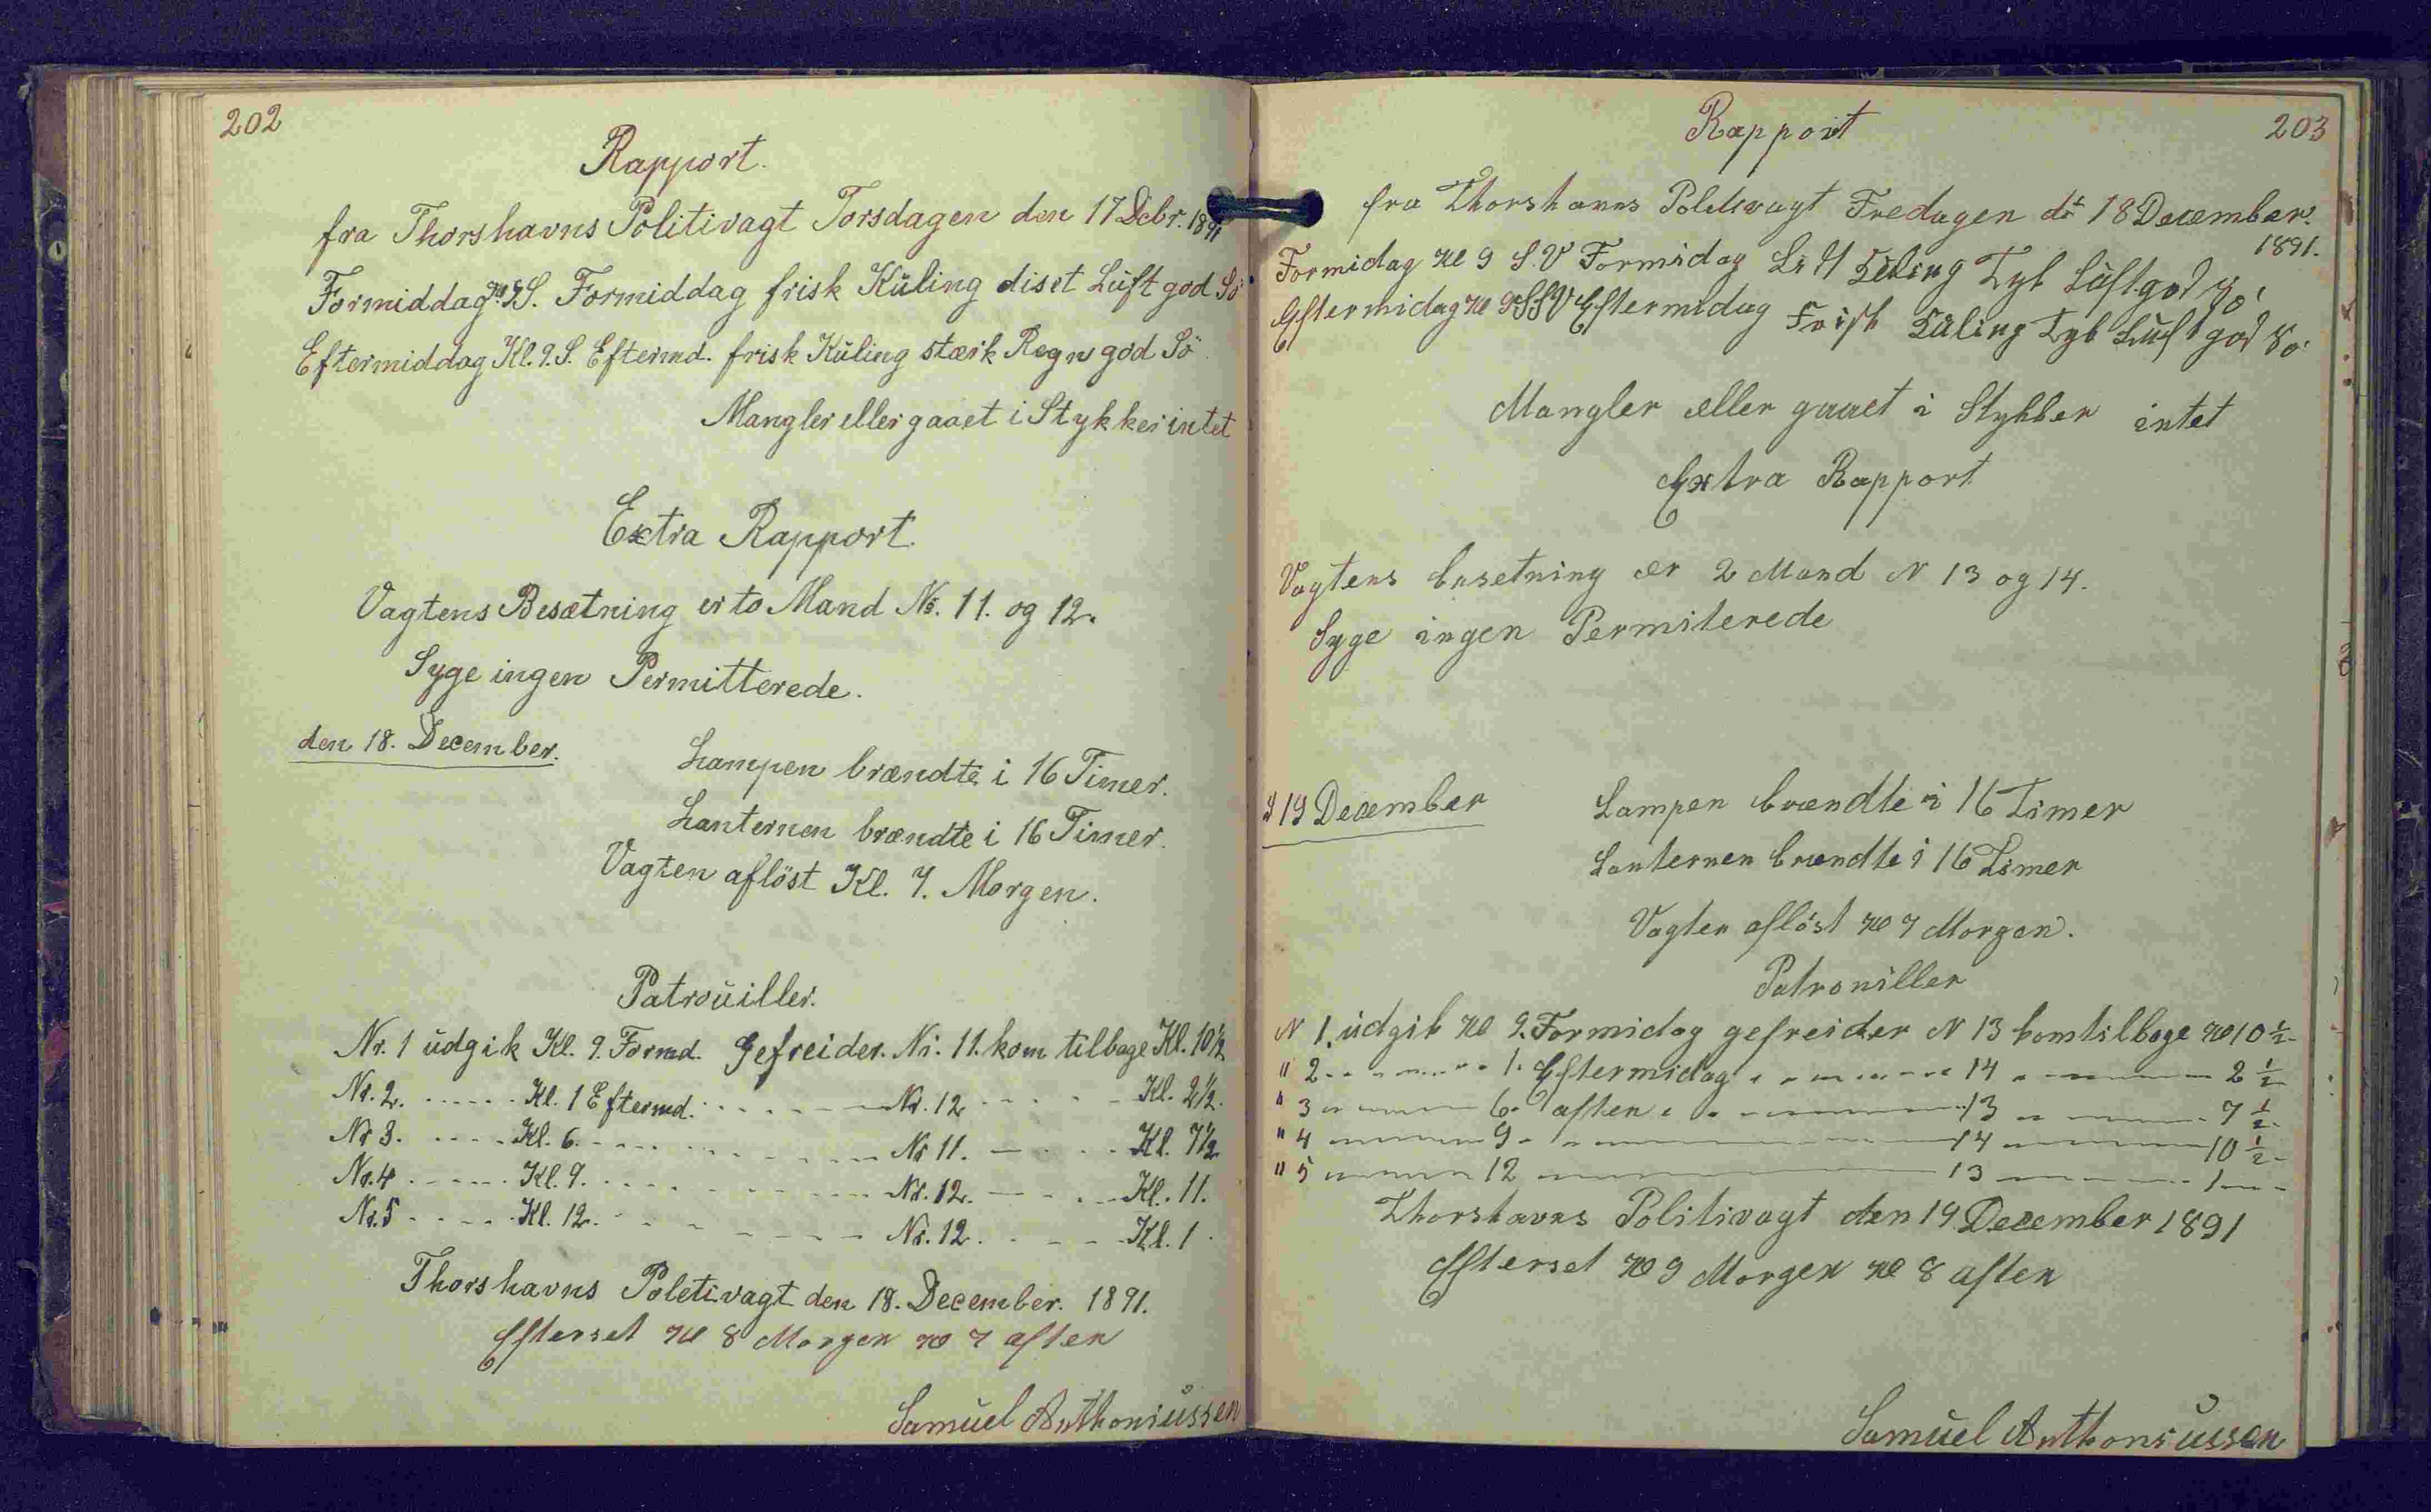 202
Rapport.
fra Thorshavns Politivagt Torsdagen den 17 Debr. 1891
Formiddag Kl. 9 S. Formiddag frisk Küling diset Luft god Sö
Eftermiddag Kl. 9. S. Eftermd. frisk Küling stærk Regn god Sö
Mangler eller gaaet i Stykker intet
Extra Rapport.
Vagtens Besætning er to Mand Nr. 11. og 12.
Syge ingen Permitterede.
den 18. December.
Lampen brændte i 16 Timer.
Lanternen brændte i 16 Timer.
Vagten aflöst Kl. 7. Morgen.
Patrouiller.
Nr. 1 udgik Kl. 9. Formd. Gefreider. Nr. 11. kom tilbage Kl. 10½
Nr. 2. - - - - - Kl. 1 Eftermd. - - - - - - Nr. 12 - - - - - Kl. 2½.
Nr 3. - - - - Kl. 6. - - - - - - Nr 11. - - - - Kl. 7½
Nr. 4 - - - - - Kl. 9. - - - - - - Nr. 12. - - - - Kl. 11.
Nr. 5 - - - - Kl. 12. - - - - - - Nr. 12. - - - - Kl. 1.
Thorshavns Poletivagt den 18. December. 1891.
Efterset Kl 8 Morgen Kl 7 aften
Samuel Anthoniussen
Rapport
203
fra Thorshavns Politivagt Fredagen dn 18 December.
1891.
Formidag Kl 9 S.V Formidag Küling Tyk Luft god So
Eftermidag Kl 9 SSV Eftermidag Frisk Küling Tyk Luft god So
Mangler eller gaaet i Stykker intet
Extra Rapport
Vagtens besetning er 2 Mand N 13 og 14.
Syge ingen Permiterede
d 19 December
Lampen brændte i 16 Timer
Lanternen brændte i 16 Timer
Vagten aflöst Kl 7 Morgen.
Patroniller
N 1. udgik Kl 9. Formidag gefreider N 13 kom tilbage Kl 10 ½ -
" 2 - - - - - - 1. Eftermidag - - - - - - 14 - - - - - 2 ½ -
" 3 - - - - - 6. aften - - - - - - 13 - - - - - 7 ½ -
" 4 - - - - - 9 - - - - - - 14 - - - - - 10 ½ -
" 5 - - - - - 12 - - - - - - 13 - - - - - 1 - - -
Thorshavns Politivagt den 19 December 1891
Efterset Kl 9 Morgen Kl 8 aften
Samuel Anthoniussen